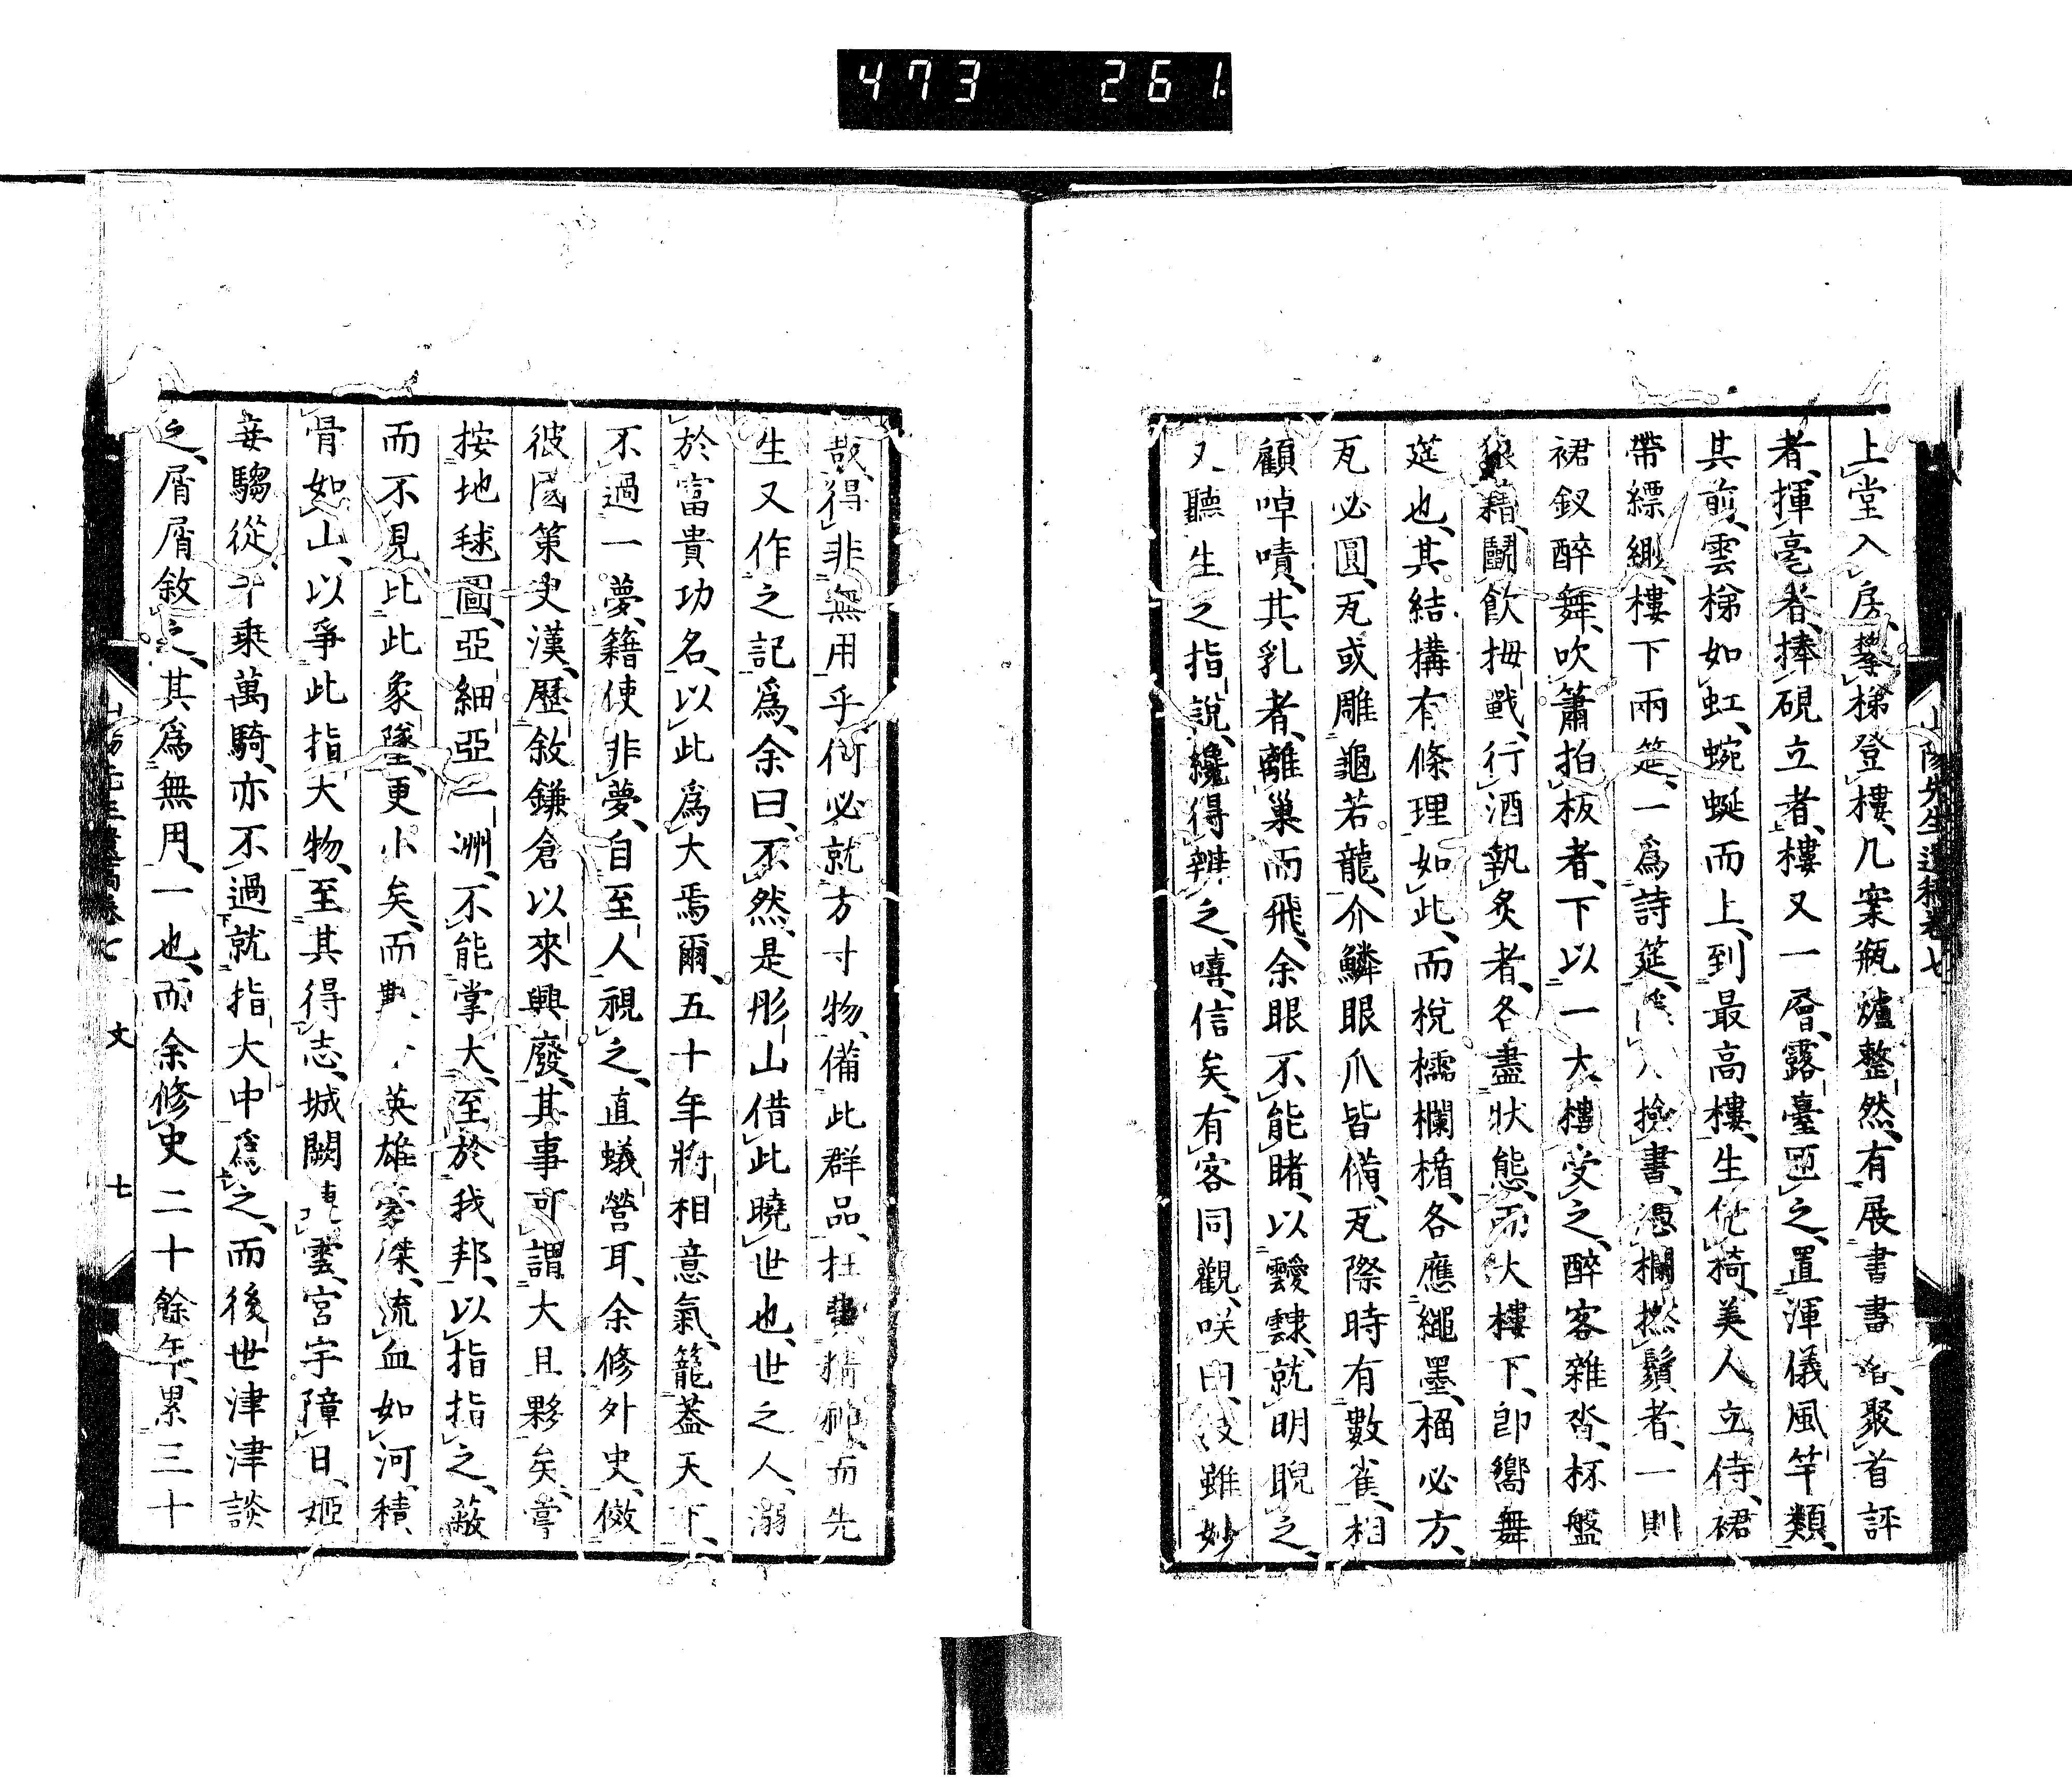 473 261
山陽先生遺稿卷七
上堂入房、攀梯登樓、几案瓶爐整然、有展書書者、聚首評
者、揮毫者、捧硯立者、樓又一層、露臺亞之、置渾儀風竿類、
其前、雲梯如虹、蜿蜒而上、到最高樓、生倚、美人立侍、裙
帶縹緲、樓下兩筵、一爲詩筵、撿書、憑欄撚鬚者、一則
裙釵醉舞、吹簫拍板者、下以一大樓受之、醉客雜沓、杯盤
狼藉、鬪飮拇戰、行酒執炙者、各盡狀態、而大樓下、卽嚮舞
筵也、其結構有條理如此、而梲檽欄楯、各應繩墨、桷必方、
瓦必圓、瓦或雕龜若龍、介鱗眼爪皆備、瓦際時有數雀、相
顧啅嘖、其乳者、離巢而飛、余眼不能睹、以靉靆、就明睨之、
又聽生之指說、纔得辨之、嘻、信矣、有客同觀、咲曰、技雖妙
哉、得非無用乎、何必就方寸物、備此群品、枉費精神、而先
生又作之記爲、余曰、不然、是彤山借此曉世也、世之人、溺
於富貴功名、以此爲大焉爾、五十年將相意氣、籠蓋天下、
不過一夢、籍使非夢、自至人視之、直蟻營耳、余修外史、倣
彼國策史漢、歷敘鎌倉以來興廢、其事可謂大且夥矣、嘗
按地毬圖、亞細亞一洲、不能掌大、至於我邦、以指指之、蔽
而不見、比此象墜、更小矣、而英雄豪傑、流血如河、積
骨如山、以爭此指大物、至其得志、城闕連雲、宮宇障日、姬
妾騶從、千乘萬騎、亦不過就指大中爲之、而後世津津談
之、屑屑敘之、其爲無用、一也、而余修史二十餘年、累三十
山陽先生遺稿卷七 文 七